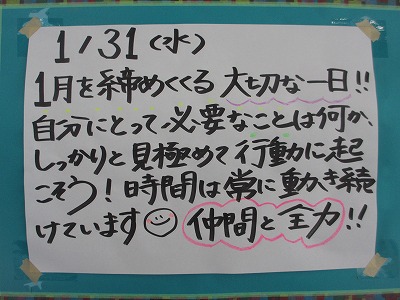 1/31(水)
1月を締めくくる大切な一日!!
自分にとって必要なことは何か、
しっかりと見極めて行動に起
こそう!時間は常に動き続
けています 仲間と全力!!